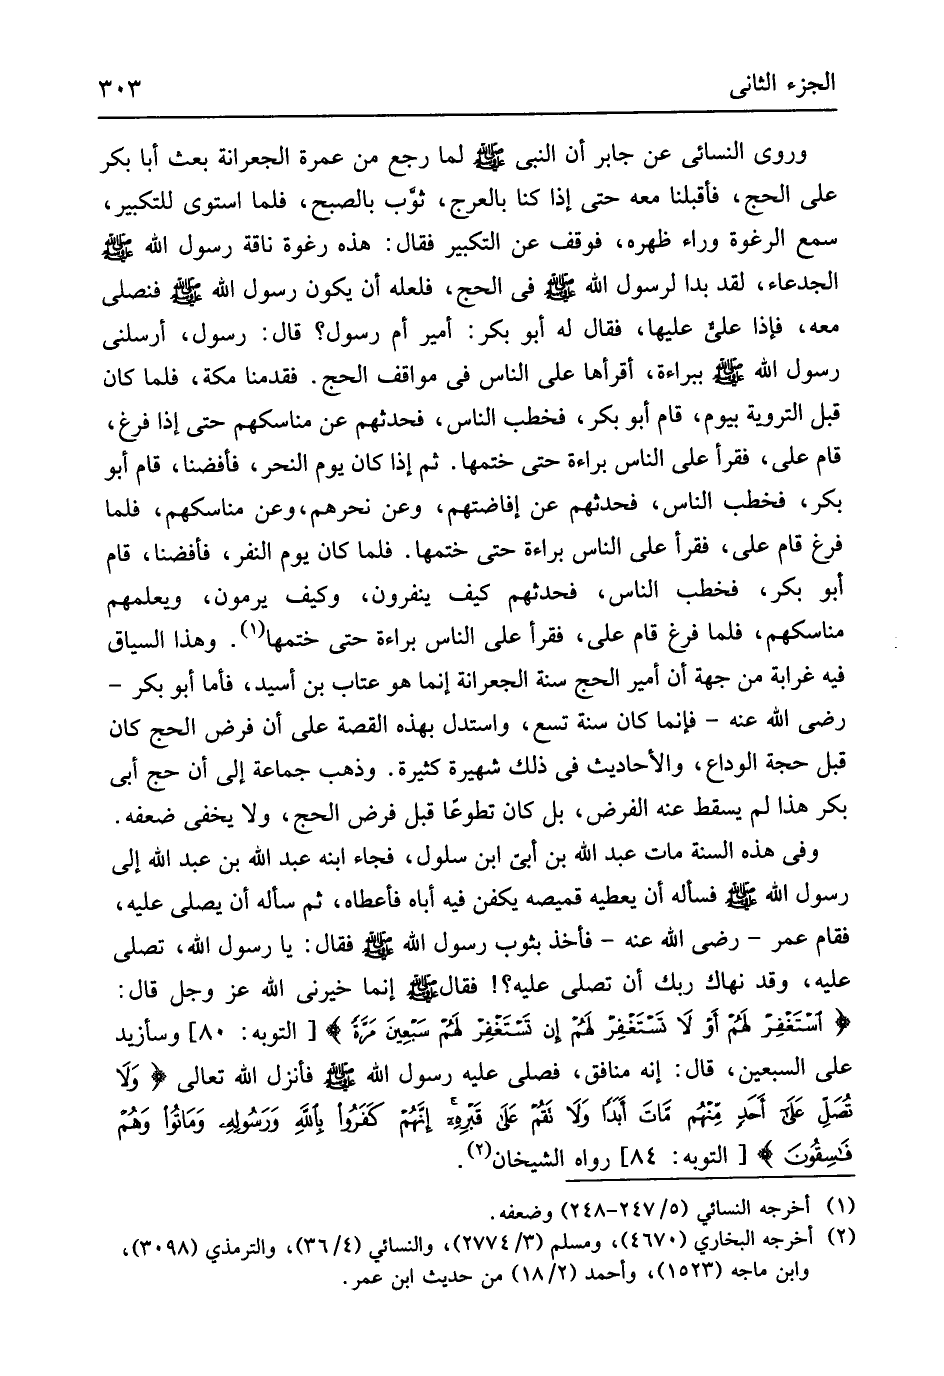 الجزء الثانى ٣٠٣
وروى النسائى عن جابر أن النبى ﷺ لما رجع من عمرة الجعرانة بعث أبا بكر
على الحج، فأقبلنا معه حتى إذا كنا بالعرج، ثوَّب بالصبح، فلما استوى للتكبير،
سمع الرغوة وراء ظهره، فوقف عن التكبير فقال: هذه رغوة ناقة رسول الله ﷺ
الجدعاء، لقد بدا لرسول الله ﷺ فى الحج، فلعله أن يكون رسول الله ﷺ فنصلى
معه، فإذا علىٌّ عليها، فقال له أبو بكر: أمير أم رسول؟ قال: رسول، أرسلنى
رسول الله ﷺ ببراءة، أقرأها على الناس فى مواقف الحج. فقدمنا مكة، فلما كان
قبل التروية بيوم، قام أبو بكر، فخطب الناس، فحدثهم عن مناسكهم حتى إذا فرغ،
قام على، فقرأ على الناس براءة حتى ختمها. ثم إذا كان يوم النحر، فأفضنا، قام أبو
بكر، فخطب الناس، فحدثهم عن إفاضتهم، وعن نحرهم،وعن مناسكهم، فلما
فرغ قام على، فقرأ على الناس براءة حتى ختمها. فلما كان يوم النفر، فأفضنا، قام
أبو بكر، فخطب الناس، فحدثهم كيف ينفرون، وكيف يرمون، ويعلمهم
مناسكهم، فلما فرغ قام على، فقرأ على الناس براءة حتى ختمها(١). وهذا السياق
فيه غرابة من جهة أن أمير الحج سنة الجعرانة إنما هو عتاب بن أسيد، فأما أبو بكر –
رضى الله عنه – فإنما كان سنة تسع، واستدل بهذه القصة على أن فرض الحج كان
قبل حجة الوداع، والأحاديث فى ذلك شهيرة كثيرة. وذهب جماعة إلى أن حج أبى
بكر هذا لم يسقط عنه الفرض، بل كان تطوعًا قبل فرض الحج، ولا يخفى ضعفه.
وفى هذه السنة مات عبد الله بن أبىّ ابن سلول، فجاء ابنه عبد الله بن عبد الله إلى
رسول الله ﷺ فسأله أن يعطيه قميصه يكفن فيه أباه فأعطاه، ثم سأله أن يصلى عليه،
فقام عمر – رضى الله عنه – فأخذ بثوب رسول الله ﷺ فقال: يا رسول الله، تصلى
عليه، وقد نهاك ربك أن تصلى عليه؟! فقالﷺ إنما خيرنى الله عز وجل قال:
﴿ ٱسْتَغْفِرْ لَهُمْ أَوْ لَا تَسْتَغْفِرْ لَهُمْ إِن تَسْتَغْفِرْ لَهُمْ سَبْعِينَ مَرَّةً ﴾ [ التوبه: ٨٠] وسأزيد
على السبعين، قال: إنه منافق، فصلى عليه رسول الله ﷺ فأنزل الله تعالى ﴿ وَلَا
تُصَلِّ عَلَىٰٓ أَحَدٍ مِّنْهُم مَّاتَ أَبَدًا وَلَا تَقُمْ عَلَىٰ قَبْرِهِۦٓ ۖ إِنَّهُمْ كَفَرُوا۟ بِٱللَّهِ وَرَسُولِهِۦ وَمَاتُوا۟ وَهُمْ
فَـٰسِقُونَ ﴾ [ التوبه: ٨٤] رواه الشيخان(٢).
(١) أخرجه النسائي (٢٤٧/٥-٢٤٨) وضعفه.
(٢) أخرجه البخاري (٤٦٧٠)، ومسلم (٢٧٧٤/٣)، والنسائي (٣٦/٤)، والترمذي (٣٠٩٨)،
وابن ماجه (١٥٢٣)، وأحمد (١٨/٢) من حديث ابن عمر.